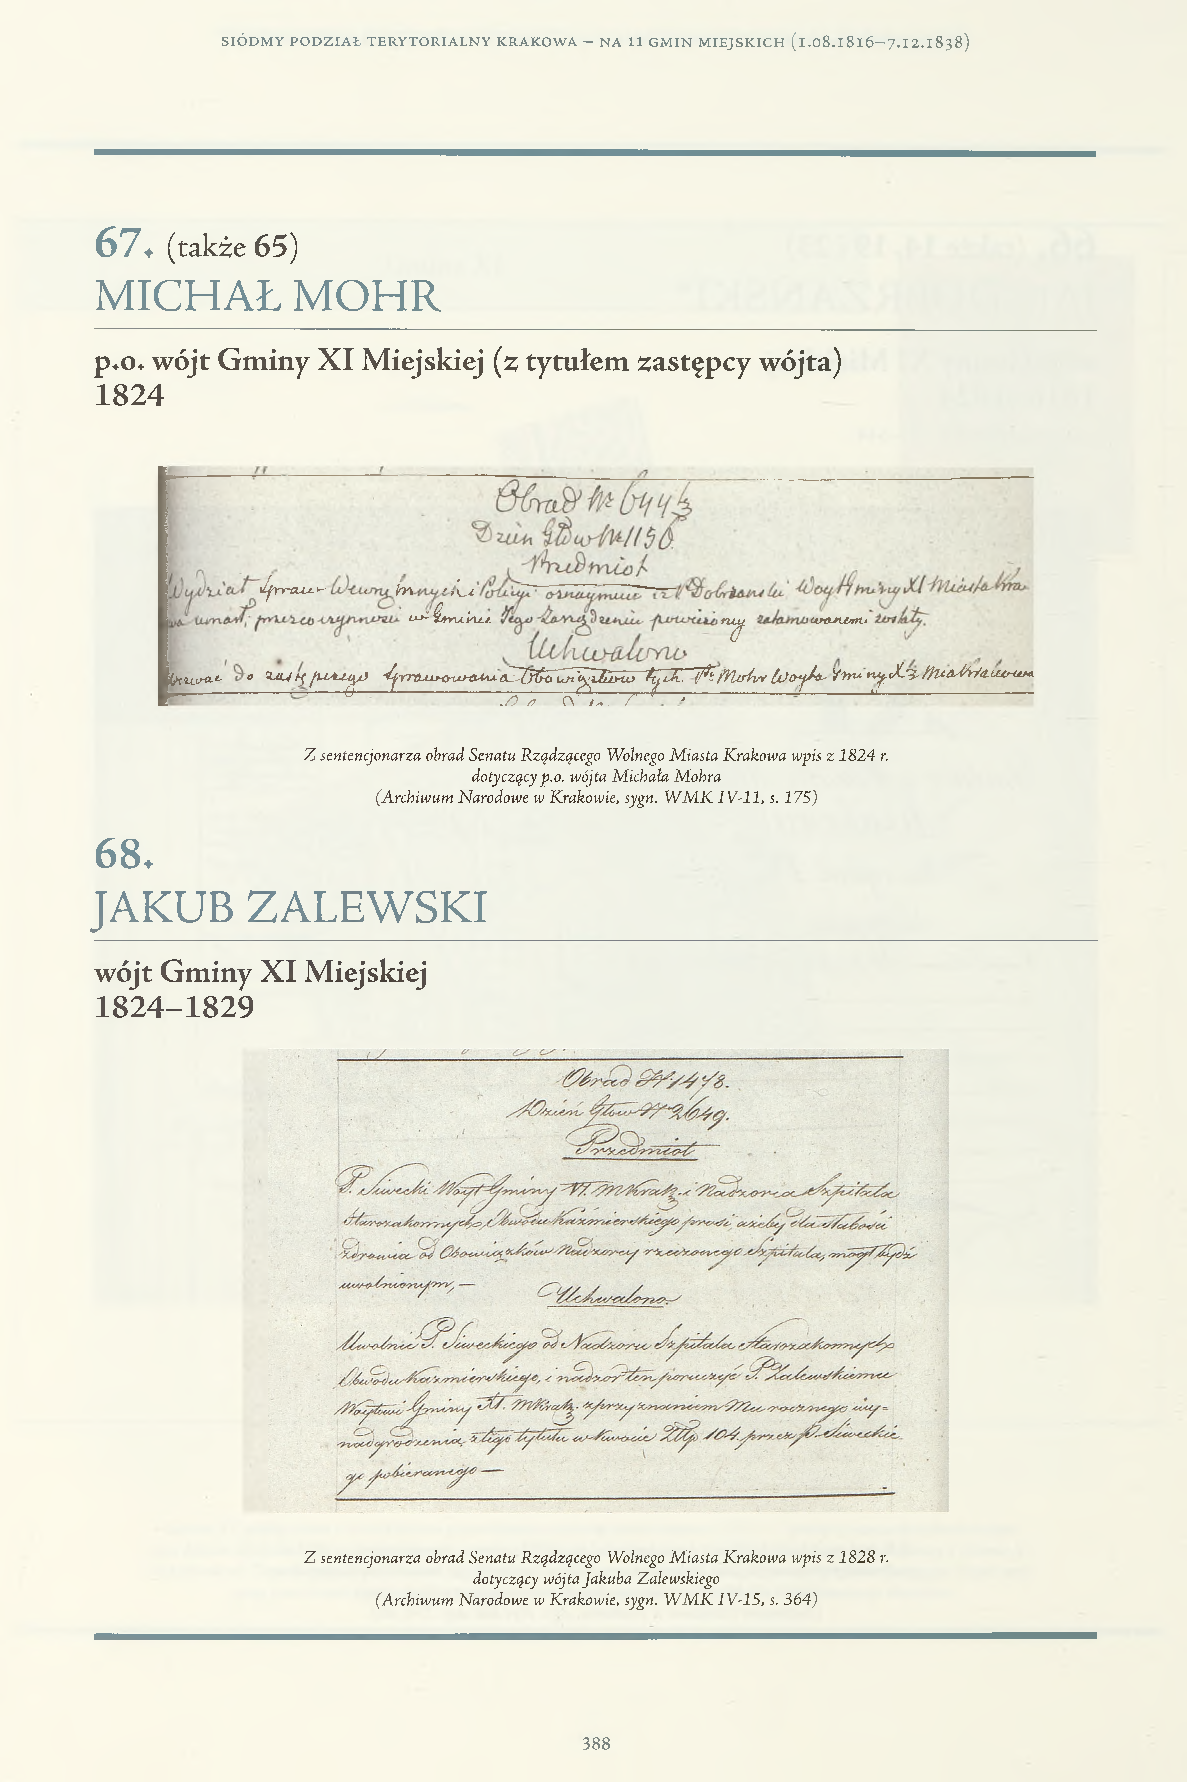 SIÓDMY PODZIAŁ TERYTORIALNY KRAKOWA – NA 11 GMIN MIEJSKICH (1.08.1816–7.12.1838)
67. (także 65)
MICHAŁ MOHR
p.o. wójt Gminy XI Miejskiej (z tytułem zastępcy wójta)
1824
Obrad Nr 644
Dzien Głów Nr 1156
Przedmiot
Wydział Spraw Wewnętrznych i Policyi oznaymuie iż P. Dobrzanski Woyt Gminy XI Miasta Kra-
kowa umarł, przez co czynności w Gminie Jego Zarządzeniu powierzoney zatamowanemi zostały.
Uchwalono
Wezwać do zastępczego sprawowania Obowiązków tych P. Mohr Woyta Gminy X Mia Krakowa
Z sentencjonarza obrad Senatu Rządzącego Wolnego Miasta Krakowa wpis z 1824 r.
dotyczący p.o. wójta Michała Mohra
(Archiwum Narodowe w Krakowie, sygn. WMK IV-11, s. 175)
68.
JAKUB ZALEWSKI
wójt Gminy XI Miejskiej
1824–1829
Obrad N 1478.
Dzień Głow N 2649.
Przedmiot
P. Siwecki Woyt Gminy VI. M Krak. i Nadzorca Szpitala
Starozakonnych Obwodu Kaźmierskiego prosi, ażeby dla słabości
zdrowia od Obowiązków Nadzorcy rzeczonego Szpitala, mógł bydź
uwolnionym, —
Uchwalono.
Uwolnić P. Siweckiego od Nadzoru Szpitala Starozakonnych
Obwodu Kazmierskiego, i nadzór ten poruczyć P. Zalewskiemu
Woytowi Gminy XI. M Krak. z przyznaniem Mu rocznego wy-
nadgrodzenia, z tego tytułu w kwocie Złp 104. przez P. Siweckie
go pobieranego —
Z sentencjonarza obrad Senatu Rządzącego Wolnego Miasta Krakowa wpis z 1828 r.
dotyczący wójta Jakuba Zalewskiego
(Archiwum Narodowe w Krakowie, sygn. WMK IV-15, s. 364)
388